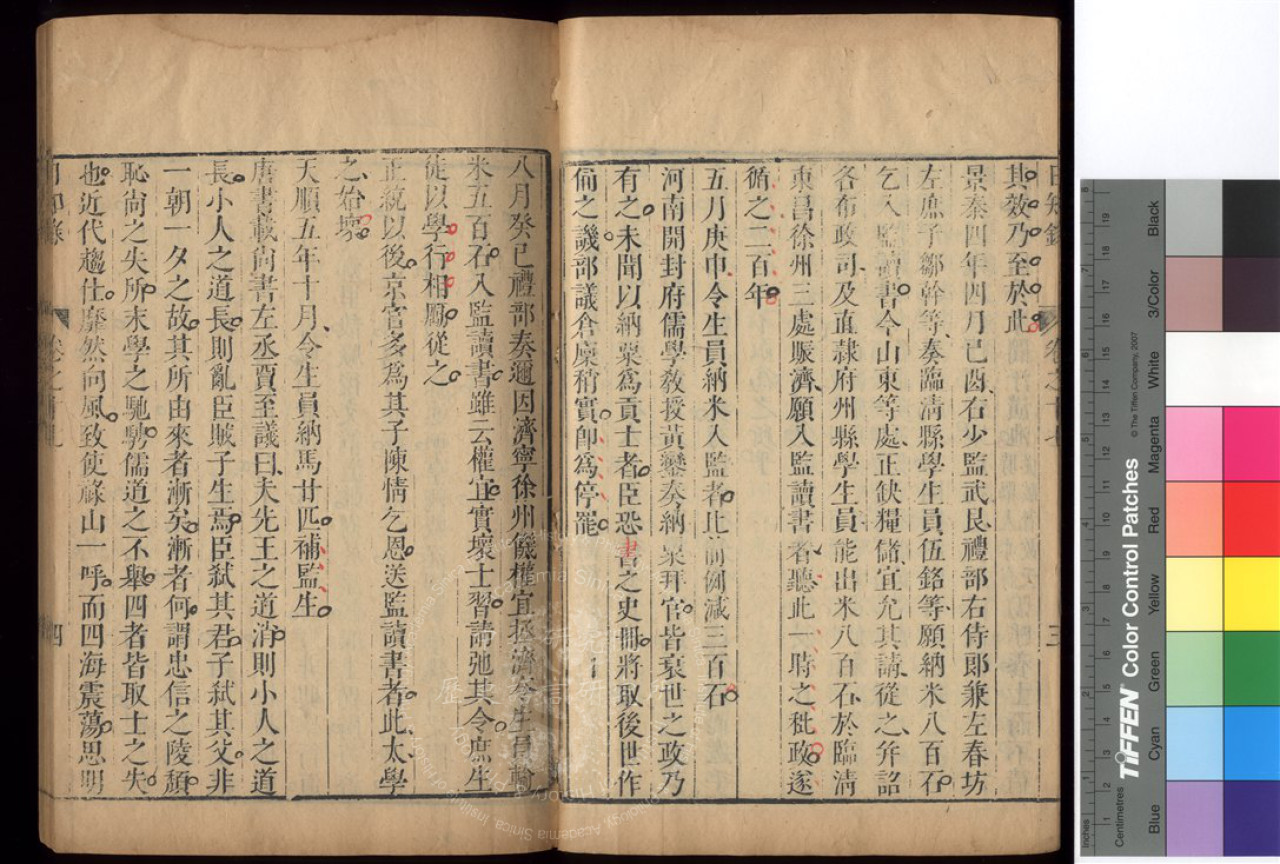 日知錄 卷之十七 三
其效乃至於此
景泰四年四月己酉右少監武艮禮部右侍郎兼左春坊
左庶子鄒幹等奏臨清縣學生員伍銘等願納米八百石
乞入監讀書今山東等處正缺糧儲宜允其請從之并詔
各布政司及直隸府州縣學生員能出米八百石於臨清
東昌徐州三處賑濟願入監讀書者聽此一時之秕政遂
循之二百年
五月庚申令生員納米入監者比前例減三百石
河南開封府儒學教授黃鑾奏納粟拜官皆衰世之政乃
有之未聞以納粟爲貢士者臣恐書之史冊將取後世作
俑之譏部議倉廩稍實即爲停罷
八月癸巳禮部奏邇因濟寧徐州饑權宜拯濟令生員輸
米五百石入監讀書雖云權宜實壞士習請弛其令庶生
徒以學行相勵從之
正統以後京官多爲其子陳情乞恩送監讀書者此太學
之始壞
天順五年十月令生員納馬廿匹補監生
唐書載尚書左丞賈至議曰夫先王之道消則小人之道
長小人之道長則亂臣賊子生焉臣弒其君子弒其父非
一朝一夕之故其所由來者漸矣漸者何謂忠信之陵頽
恥尚之失所末學之馳騁儒道之不舉四者皆取士之失
也近代趨仕靡然向風致使祿山一呼而四海震蕩思明
日知錄 卷之十七 四
TIFFEN Color Control Patches
© The Tiffen Company, 2007
Inches
Centimetres
Blue Cyan Green Yellow Red Magenta White 3/Color Black